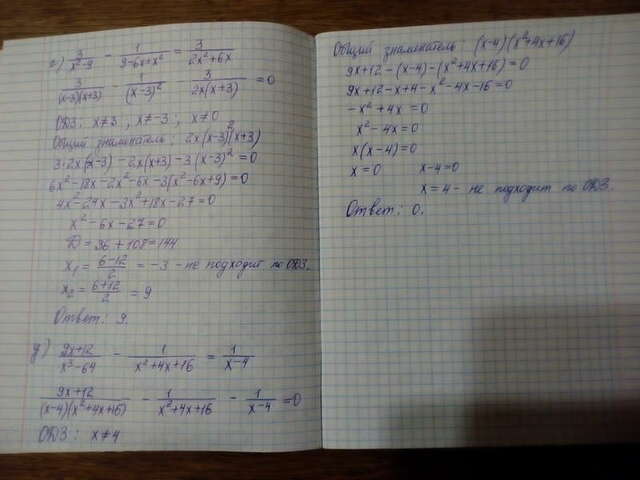 г) 3/(x²-9) - 1/(9-6x+x²) = 3/(2x²+6x)
3/((x-3)(x+3)) - 1/(x-3)² - 3/(2x(x+3)) = 0
ОДЗ: x≠3 ; x≠-3 ; x≠0
Общий знаменатель: 2x(x-3)²(x+3)
3·2x(x-3) - 2x(x+3) - 3(x-3)² = 0
6x² - 18x - 2x² - 6x - 3(x² - 6x + 9) = 0
4x² - 24x - 3x² + 18x - 27 = 0
x² - 6x - 27 = 0
D = 36 + 108 = 144
x₁ = (6-12)/2 = -3 - не подходит по ОДЗ.
x₂ = (6+12)/2 = 9
Ответ: 9.
д) (9x+12)/(x³-64) - 1/(x²+4x+16) = 1/(x-4)
(9x+12)/((x-4)(x²+4x+16)) - 1/(x²+4x+16) - 1/(x-4) = 0
ОДЗ: x≠4
Общий знаменатель: (x-4)(x²+4x+16)
9x+12 - (x-4) - (x²+4x+16) = 0
9x+12 - x+4 - x² - 4x - 16 = 0
-x² + 4x = 0
x² - 4x = 0
x(x-4) = 0
x = 0 x-4=0
x = 4 - не подходит по ОДЗ.
Ответ: 0.